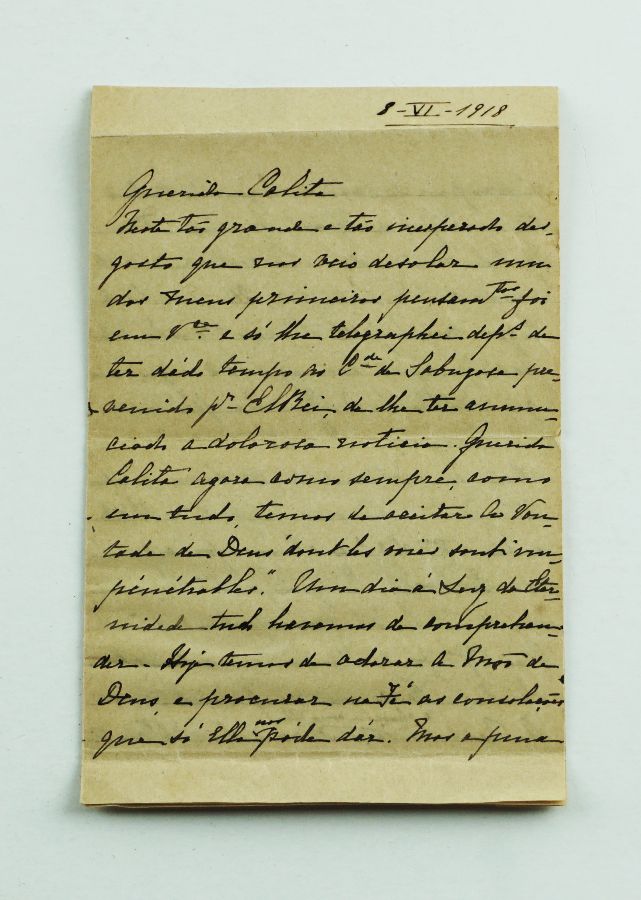 8-VI-1918
Querida Calita
Neste tão grande e tão inesperado des-
gosto que nos veio desolar um
dos meus primeiros pensam.tos foi
em V.cê e só lhe telegraphei dep.s de
ter dado tempo ao C.de de Sabugosa pre-
venido p.r ElRei, de lhe ter annun-
ciado a dolorosa noticia. Querida
Calita agora como sempre, como
em tudo, temos de aceitar a Von-
tade de Deus "dont les voies sont im-
pénétrables." Um dia á Luz da Eter-
nidade tudo havemos de comprehen-
der. Hoje temos de adorar a Mão de
Deus, e procurar na Fé as consolações
que só Elle nos póde dár. Mas a pena